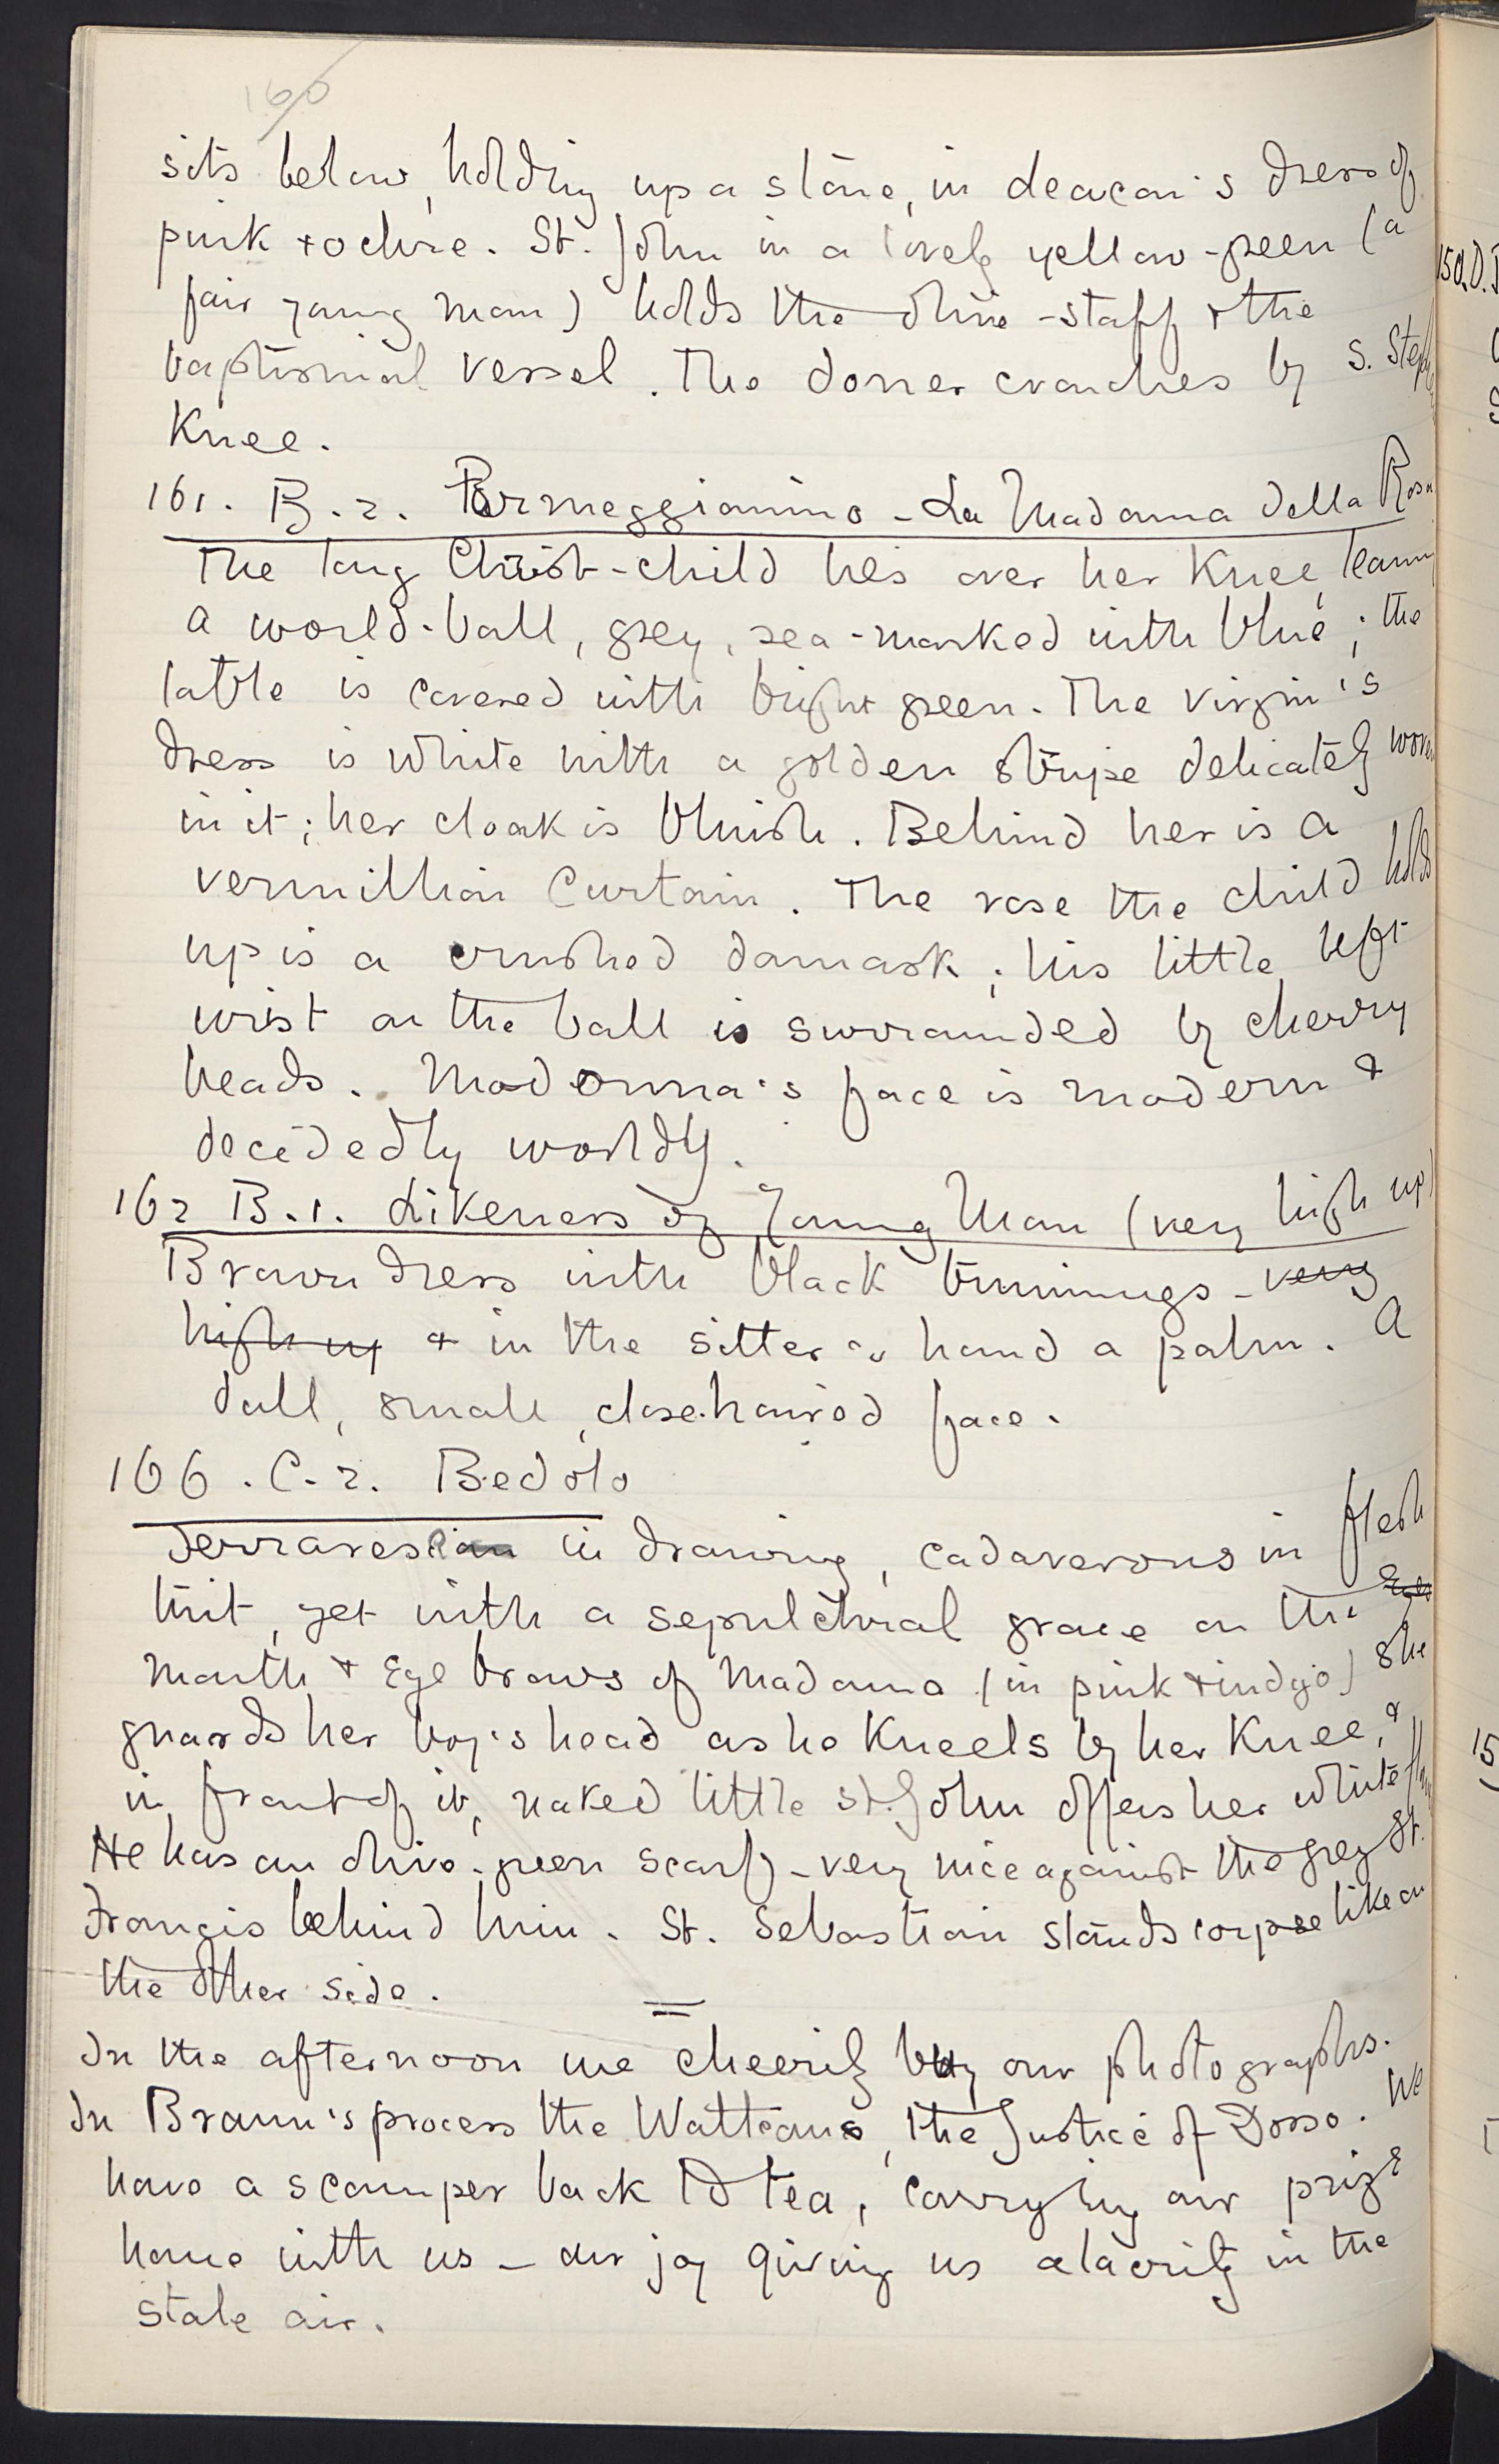 160
sits below, holding up a stone, in deacon's dress of
pink + ochre. St. John in a lovely yellow-green (a
fair young man) holds the olive-staff & the
baptismal vessel. The donor crouches by S. Steph
Knee.
161. B.2. Parmeggianino - La Madonna della Rosa
The long Christ-child lies over her Knee, leaning
a world-ball, grey, sea-marked with blue; the
table is covered with bright green. The Virgin's
dress is white with a golden stripe delicately woven
in it; her cloak is bluish. Behind her is a
vermillion Curtain. The rose the child holds
up is a crushed damask; his little left
wrist on the ball is surrounded by cherry
beads. Madonna's face is modern &
decidedly worldly.
162 B.1. Likeness of Young Man (very high up)
Brown dress with black trimmings - very
high up & in the sitter's hand a palm. A
dull, small, close-haired face.
166. C.2. Bedolo
in drawing, cadaverous in flesh
tint, yet with a sepulchral grace on the Eyes
mouth & Eye brows of Madonna (in pink & indigo) She
guards her boy's head as he Kneels by her Knee, &
in front of it, naked little St. John offers her white
He has an olive-green scarf - very nice against the grey St.
Francis behind him. St. Sebastian stands corpse like on
the other side.
In the afternoon we cheerily buy our photographs.
In Braun's process the Watteaus, the Justice of Dosso. We
have a scamper back to tea, carrying our prize
home with us - our joy giving us alacrity in the
stale air.
150. D.
15